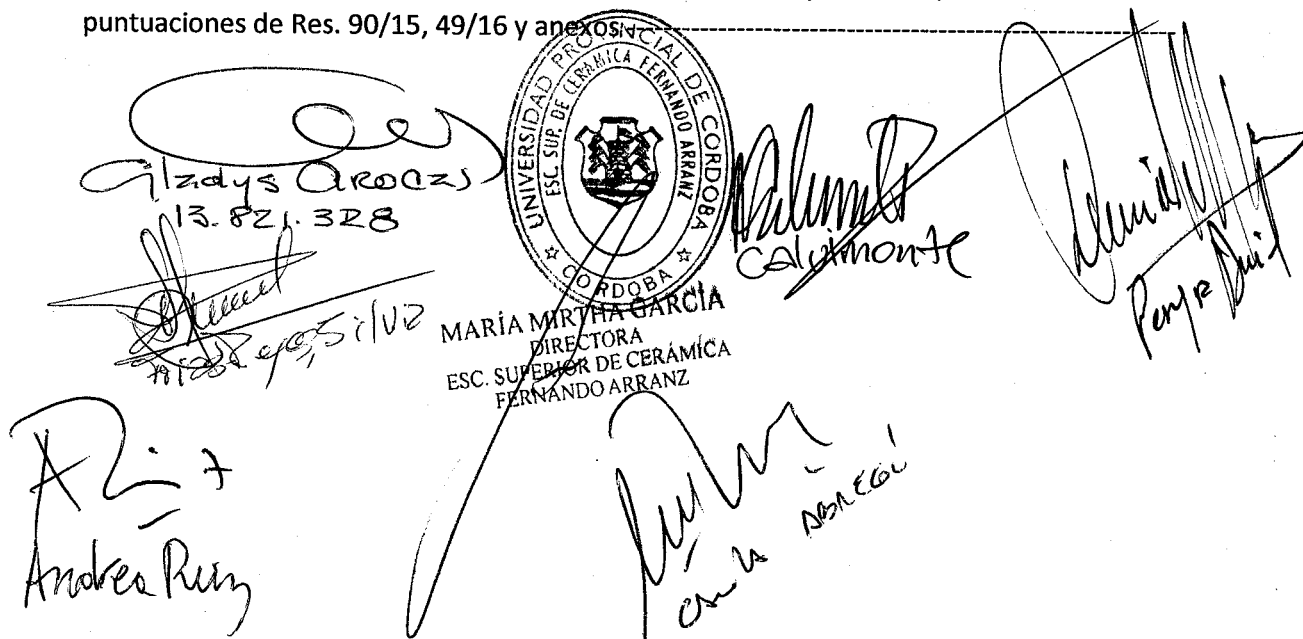 puntuaciones de Res. 90/15, 49/16 y anexos.-
UNIVERSIDAD PROVINCIAL DE CORDOBA
ESC. SUP. DE CERAMICA FERNANDO ARRANZ
CORDOBA
Gladys Arocas
13.821.328
Calvimonte
Silvia
MARÍA MIRTHA GARCÍA
DIRECTORA
ESC. SUPERIOR DE CERÁMICA
FERNANDO ARRANZ
Andrea Ruiz